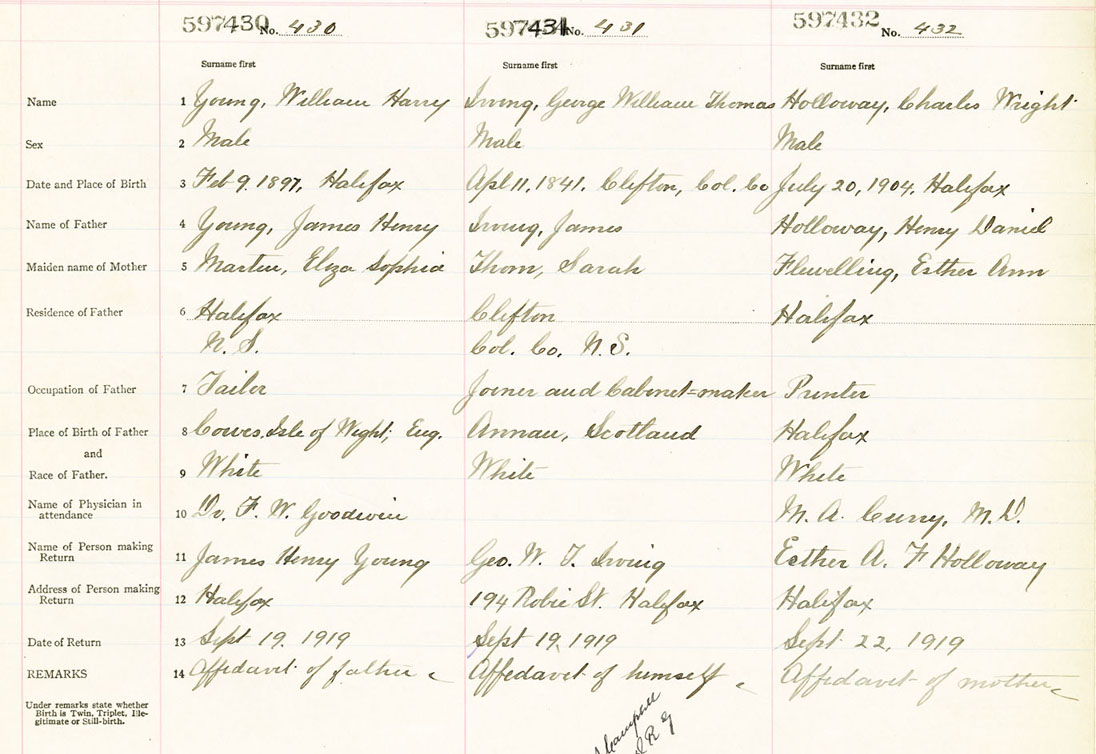 597430 No. 430 597431 No. 431 597432 No. 432
Surname first Surname first Surname first
Name 1 Young, William Harry Irving, George William Thomas Holloway, Charles Wright
Sex 2 Male Male Male
Date and Place of Birth 3 Feb 9. 1897, Halifax Apl 11, 1841. Clifton, Col. Co July 20, 1904. Halifax
Name of Father 4 Young, James Henry Irving, James Holloway, Henry Daniel
Maiden name of Mother 5 Martin, Eliza Sophia Thom, Sarah Flewelling, Esther Ann
Residence of Father 6 Halifax Clifton Halifax
N. S. Col. Co. N. S.
Occupation of Father 7 Tailor Joiner and Cabinet=maker Printer
Place of Birth of Father 8 Cowes, Isle of Wight, Eng. Annan, Scotland Halifax
and
Race of Father. 9 White White White
Name of Physician in
attendance 10 Dr. F. W. Goodwin M. A. Curry, M. D.
Name of Person making
Return 11 James Henry Young Geo. W. T. Irving Esther A. F Holloway
Address of Person making
Return 12 Halifax 194 Robie St. Halifax Halifax
Date of Return 13 Sept 19. 1919 Sept 19, 1919 Sept 22, 1919
REMARKS 14 Affidavit of father Affidavit of himself Affidavit of mother
Under remarks state whether
Birth is Twin, Triplet, Ille-
gitimate or Still-birth.